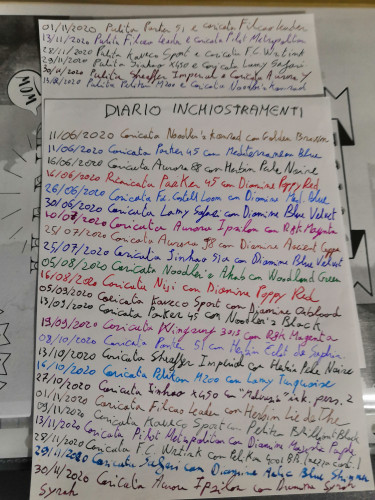 01/11/2020 Pulita Parker 51 e caricata Filcao Leader
13/11/2020 Pulita Filcao Leader e caricata Pilot Metropolitan
28/11/2020 Pulita Kaweco Sport e caricata F.C. Writink
29/11/2020 Pulita Jinhao x450 e caricata Lamy Safari
30/11/2020 Pulita Sheaffer Imperial e caricata Aurora
Pulita Pelikan M200 e caricata Noodler's Konrad
MOM
DIARIO INCHIOSTRAMENTI
11/06/2020 Caricata Noodler's Konrad con Golden Brown
11/06/2020 Caricata Parker 45 con Mediterranean Blue
16/06/2020 Caricata Aurora 88 con Herbin Perle Noire
16/06/2020 Ricaricata Parker 45 con Diamine Poppy Red
26/06/2020 Caricata F.C. Loom con Diamine Med. Blue
30/06/2020 Caricata Lamy Safari con Diamine Blue Velvet
Caricata Aurora Ipsilon con R&K Magenta
25/07/2020 Caricata Aurora 98 con Diamine Ancient Copper
25/07/2020 Caricata Jinhao 51a con Diamine Blue Velvet
05/08/2020 Caricata Noodler's Ahab con Woodland Green
16/08/2020 Caricata Niji con Diamine Poppy Red
05/09/2020 Caricata Kaweco Sport con Diamine Oxblood
13/09/2020 Caricata Parker 45 con Noodler's Black
19/09/2020 Caricata Wingsung 3013 con R&K Magenta
08/10/2020 Caricata Parker 51 con Herbin
13/10/2020 Caricata Sheaffer Imperial con Herbin Perle Noire
16/10/2020 Caricata Pelikan M200 con Lamy Turquoise
27/10/2020 Caricata Jinhao x450 con ink. pers. 2
01/11/2020 Caricata Filcao Leader con Herbin Lie de Thé
09/11/2020 Caricata Kaweco Sport con Pelikan Brilliant Black
13/11/2020 Caricata Pilot Metropolitan con Diamine Majestic Purple
28/11/2020 Caricata F.C. Writink con Pelikan 4001
29/11/2020 Caricata Safari con Diamine Blue
30/11/2020 Caricata Aurora Ipsilon con Diamine Syrah
Syrah